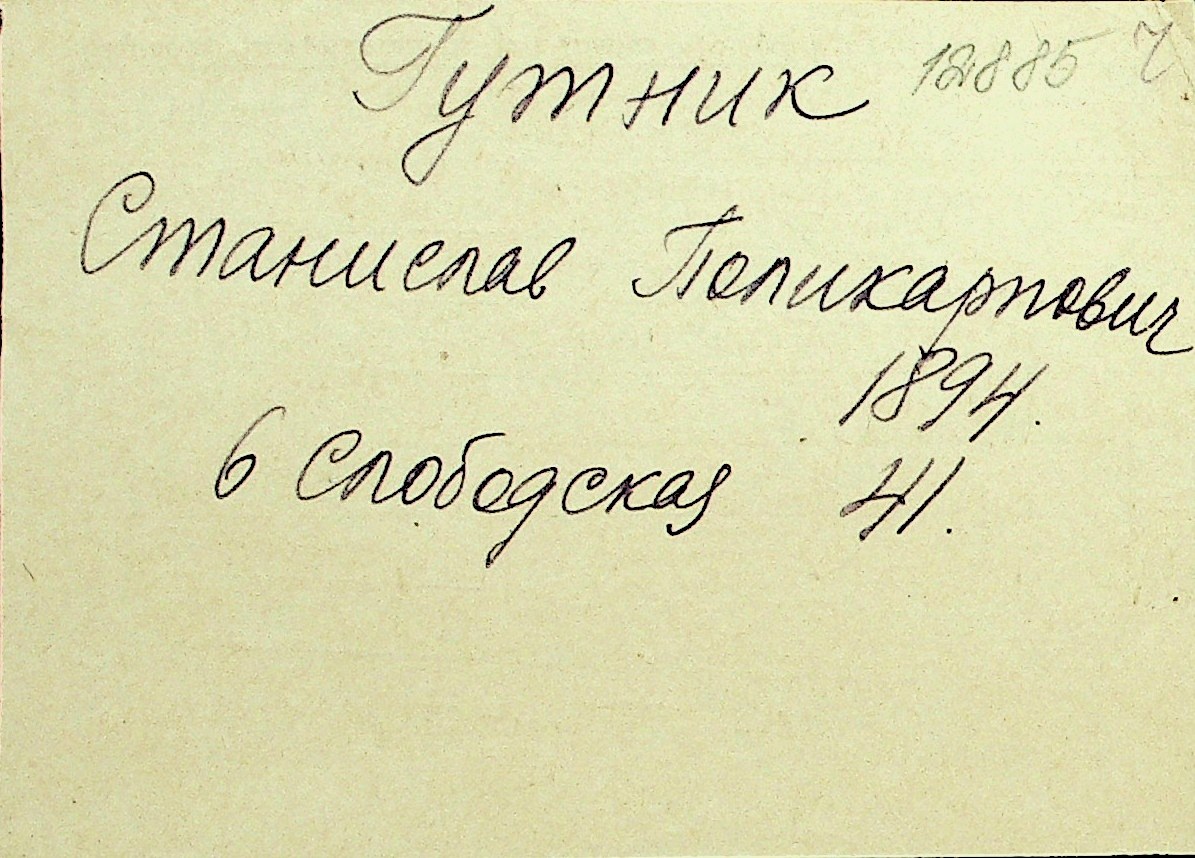 Гутник 12885 ч
Станислав Поликарпович
1894.
6 Слободская 41.